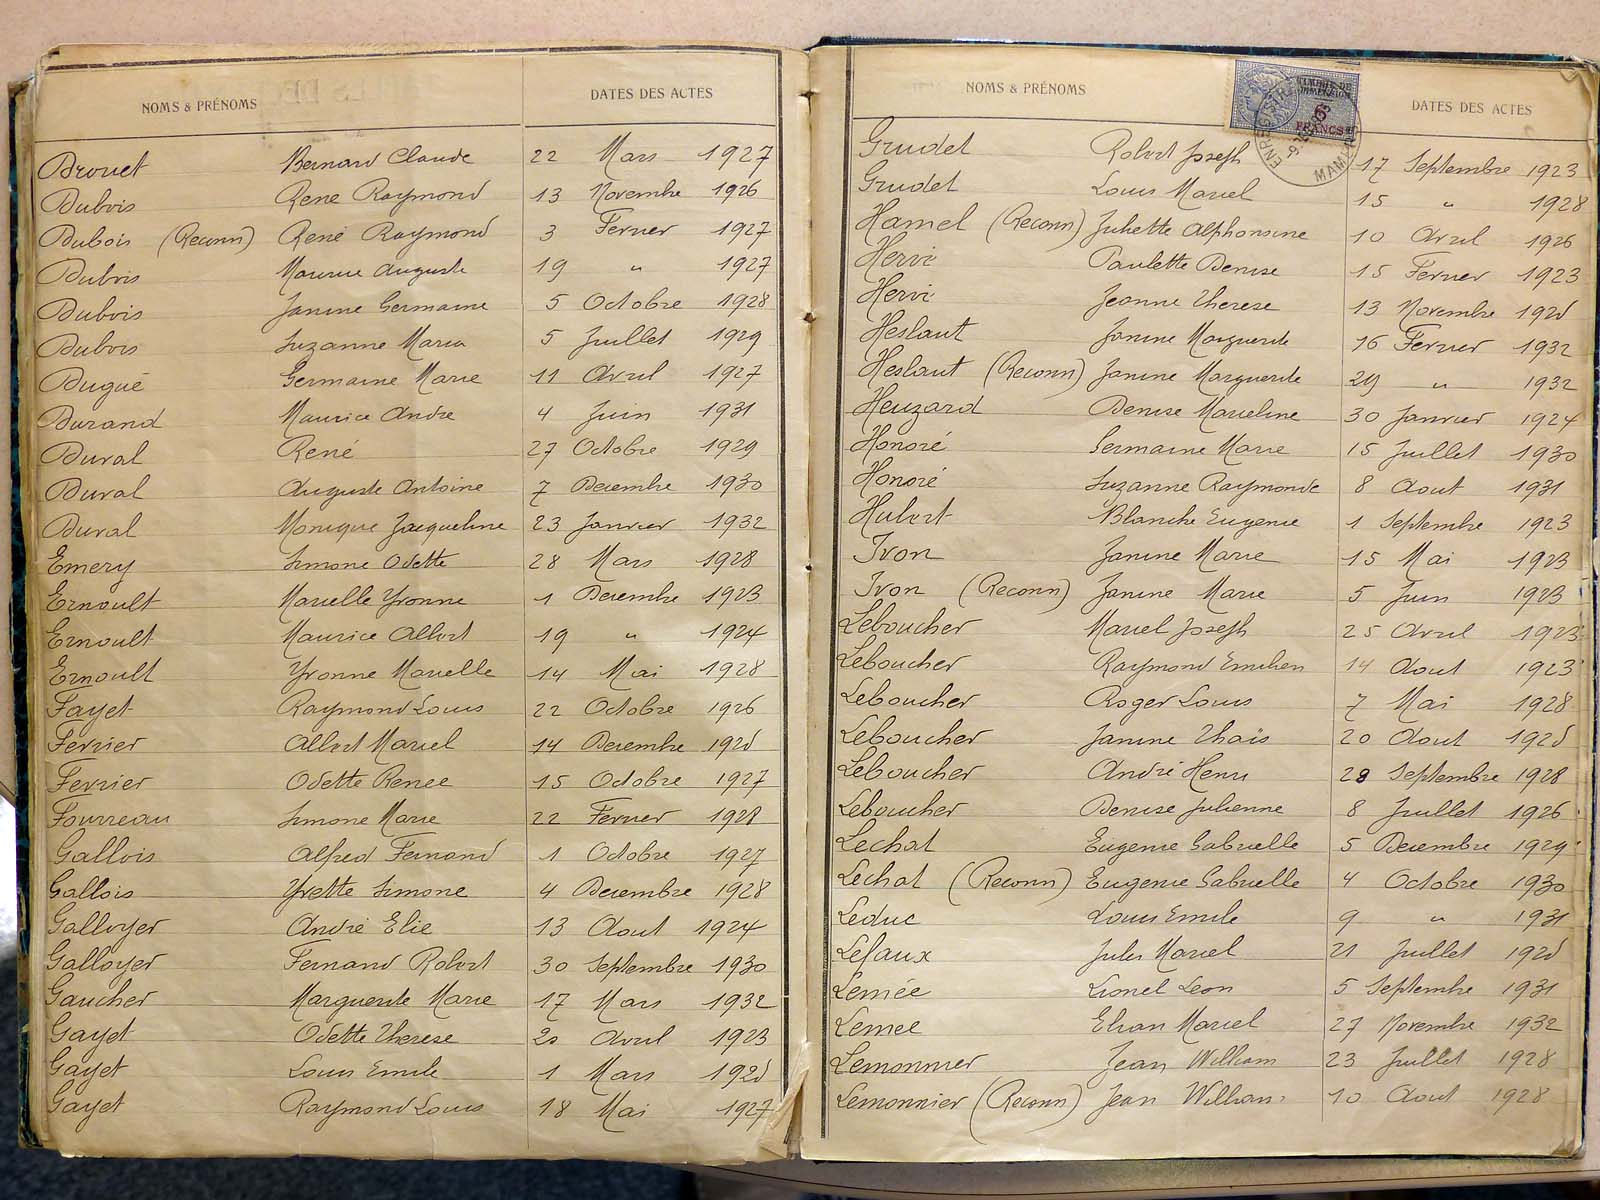 NOMS & PRÉNOMS DATES DES ACTES
Drouet Bernard Claude 22 Mars 1927
Dubois René Raymond 13 Novembre 1926
Dubois (Reconn) René Raymond 3 Fevrier 1927
Dubois Maurice Auguste 19 " 1927
Dubois Janine Germaine 5 Octobre 1928
Dubois Suzanne Maria 5 Juillet 1929
Dugué Germaine Marie 11 Avril 1927
Durand Maurice André 4 Juin 1931
Duval René 27 Octobre 1929
Duval Auguste Antoine 7 Decembre 1930
Duval Monique Jacqueline 23 Janvier 1932
Emery Simone Odette 28 Mars 1928
Ernoult Marcelle Yvonne 1 Decembre 1923
Ernoult Maurice Albert 19 " 1924
Ernoult Yvonne Marcelle 14 Mai 1928
Fayet Raymond Louis 22 Octobre 1926
Ferrier Albert Marcel 14 Decembre 1925
Ferrier Odette Renee 15 Octobre 1927
Fourreau Simone Marie 22 Fevrier 1928
Gallois Alfred Fernand 1 Octobre 1927
Gallois Yvette Simone 4 Decembre 1928
Galloyer André Elie 13 Aout 1924
Galloyer Fernand Robert 30 Septembre 1930
Gaucher Marguerite Marie 17 Mars 1932
Gayet Odette Therese 20 Avril 1923
Gayet Louis Emile 1 Mars 1925
Gayet Raymond Louis 18 Mai 1927
NOMS & PRÉNOMS DATES DES ACTES
6 FRANCS
Grudet Robert Joseph 17 Septembre 1923
Grudet Louis Marcel 15 " 1928
Hamel (Reconn) Juliette Alphonsine 10 Avril 1926
Hervi Paulette Denise 15 Fevrier 1923
Hervi Jeanne Therese 13 Novembre 1925
Heslaut Janine Marguerite 16 Fevrier 1932
Heslaut (Reconn) Janine Marguerite 29 " 1932
Heuzard Denise Marceline 30 Janvier 1924
Honoré Germaine Marie 15 Juillet 1930
Honoré Suzanne Raymonde 8 Aout 1931
Hubert Blanche Eugenie 1 Septembre 1923
Ivon Janine Marie 15 Mai 1923
Ivon (Reconn) Janine Marie 5 Juin 1923
Leboucher Marcel Joseph 25 Avril 1923
Leboucher Raymond Emilien 14 Aout 1923
Leboucher Roger Louis 7 Mai 1928
Leboucher Janine Thaïs 20 Aout 1925
Leboucher André Henri Septembre 1928
Leboucher Denise Julienne 8 Juillet 1926
Lechat Eugenie Gabrielle 5 Decembre 1929
Lechat (Reconn) Eugenie Gabrielle 4 Octobre 1930
Leduc Louis Emile 9 " 1931
Lefaux Jules Marcel 21 Juillet 1925
Lemée Lionel Leon 5 Septembre 1931
Lemee Marcel 27 Novembre 1932
Lemonnier Jean William 23 Juillet 1928
Lemonnier (Reconn) Jean William 10 Aout 1928